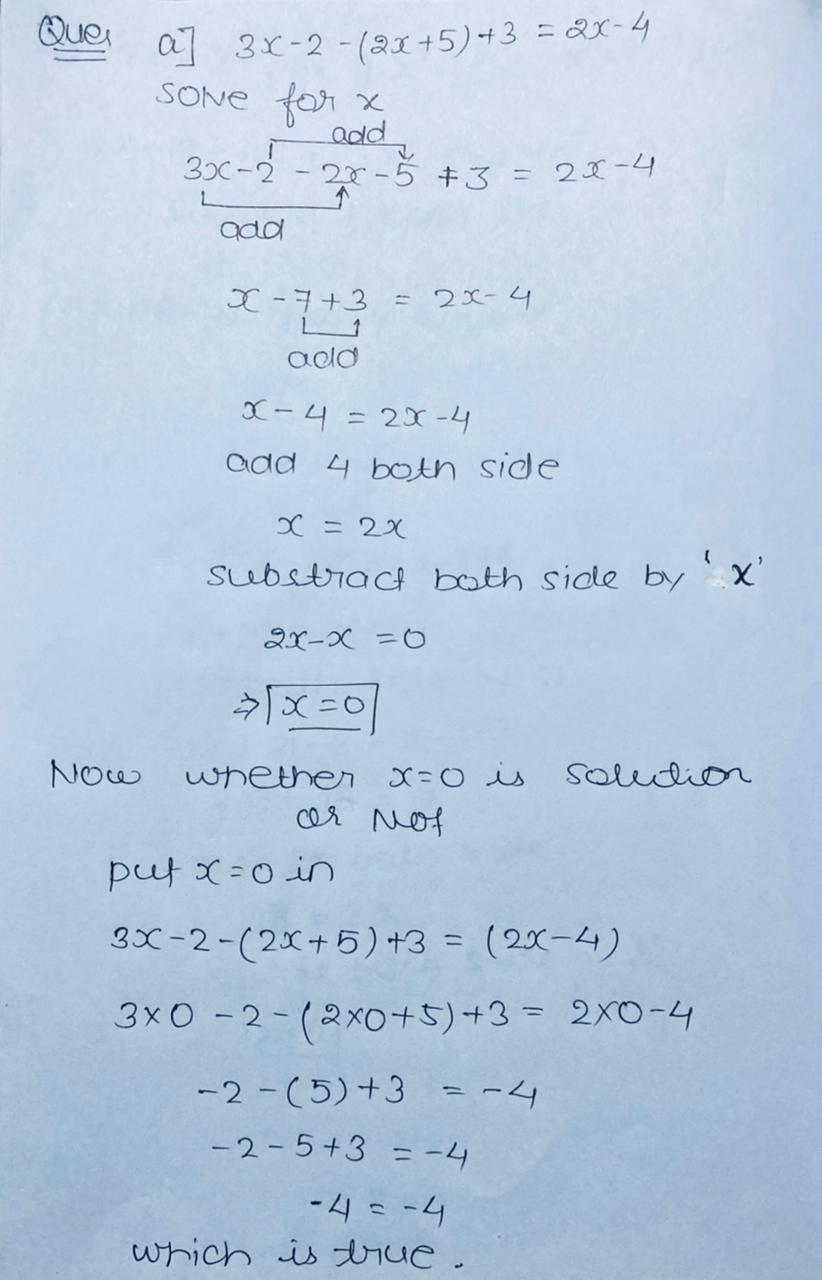 Ques a] 3x-2-(2x+5)+3 = 2x-4
Solve for x
add
3x-2 - 2x-5 +3 = 2x-4
add
x-7+3 = 2x-4
add
x-4 = 2x-4
add 4 both side
x = 2x
substract both side by 'x'
2x-x = 0
⇒ x=0
Now whether x=0 is solution
or Not
put x=0 in
3x-2-(2x+5)+3 = (2x-4)
3×0 -2-(2×0+5)+3 = 2×0-4
-2-(5)+3 = -4
-2-5+3 = -4
-4 = -4
which is true.